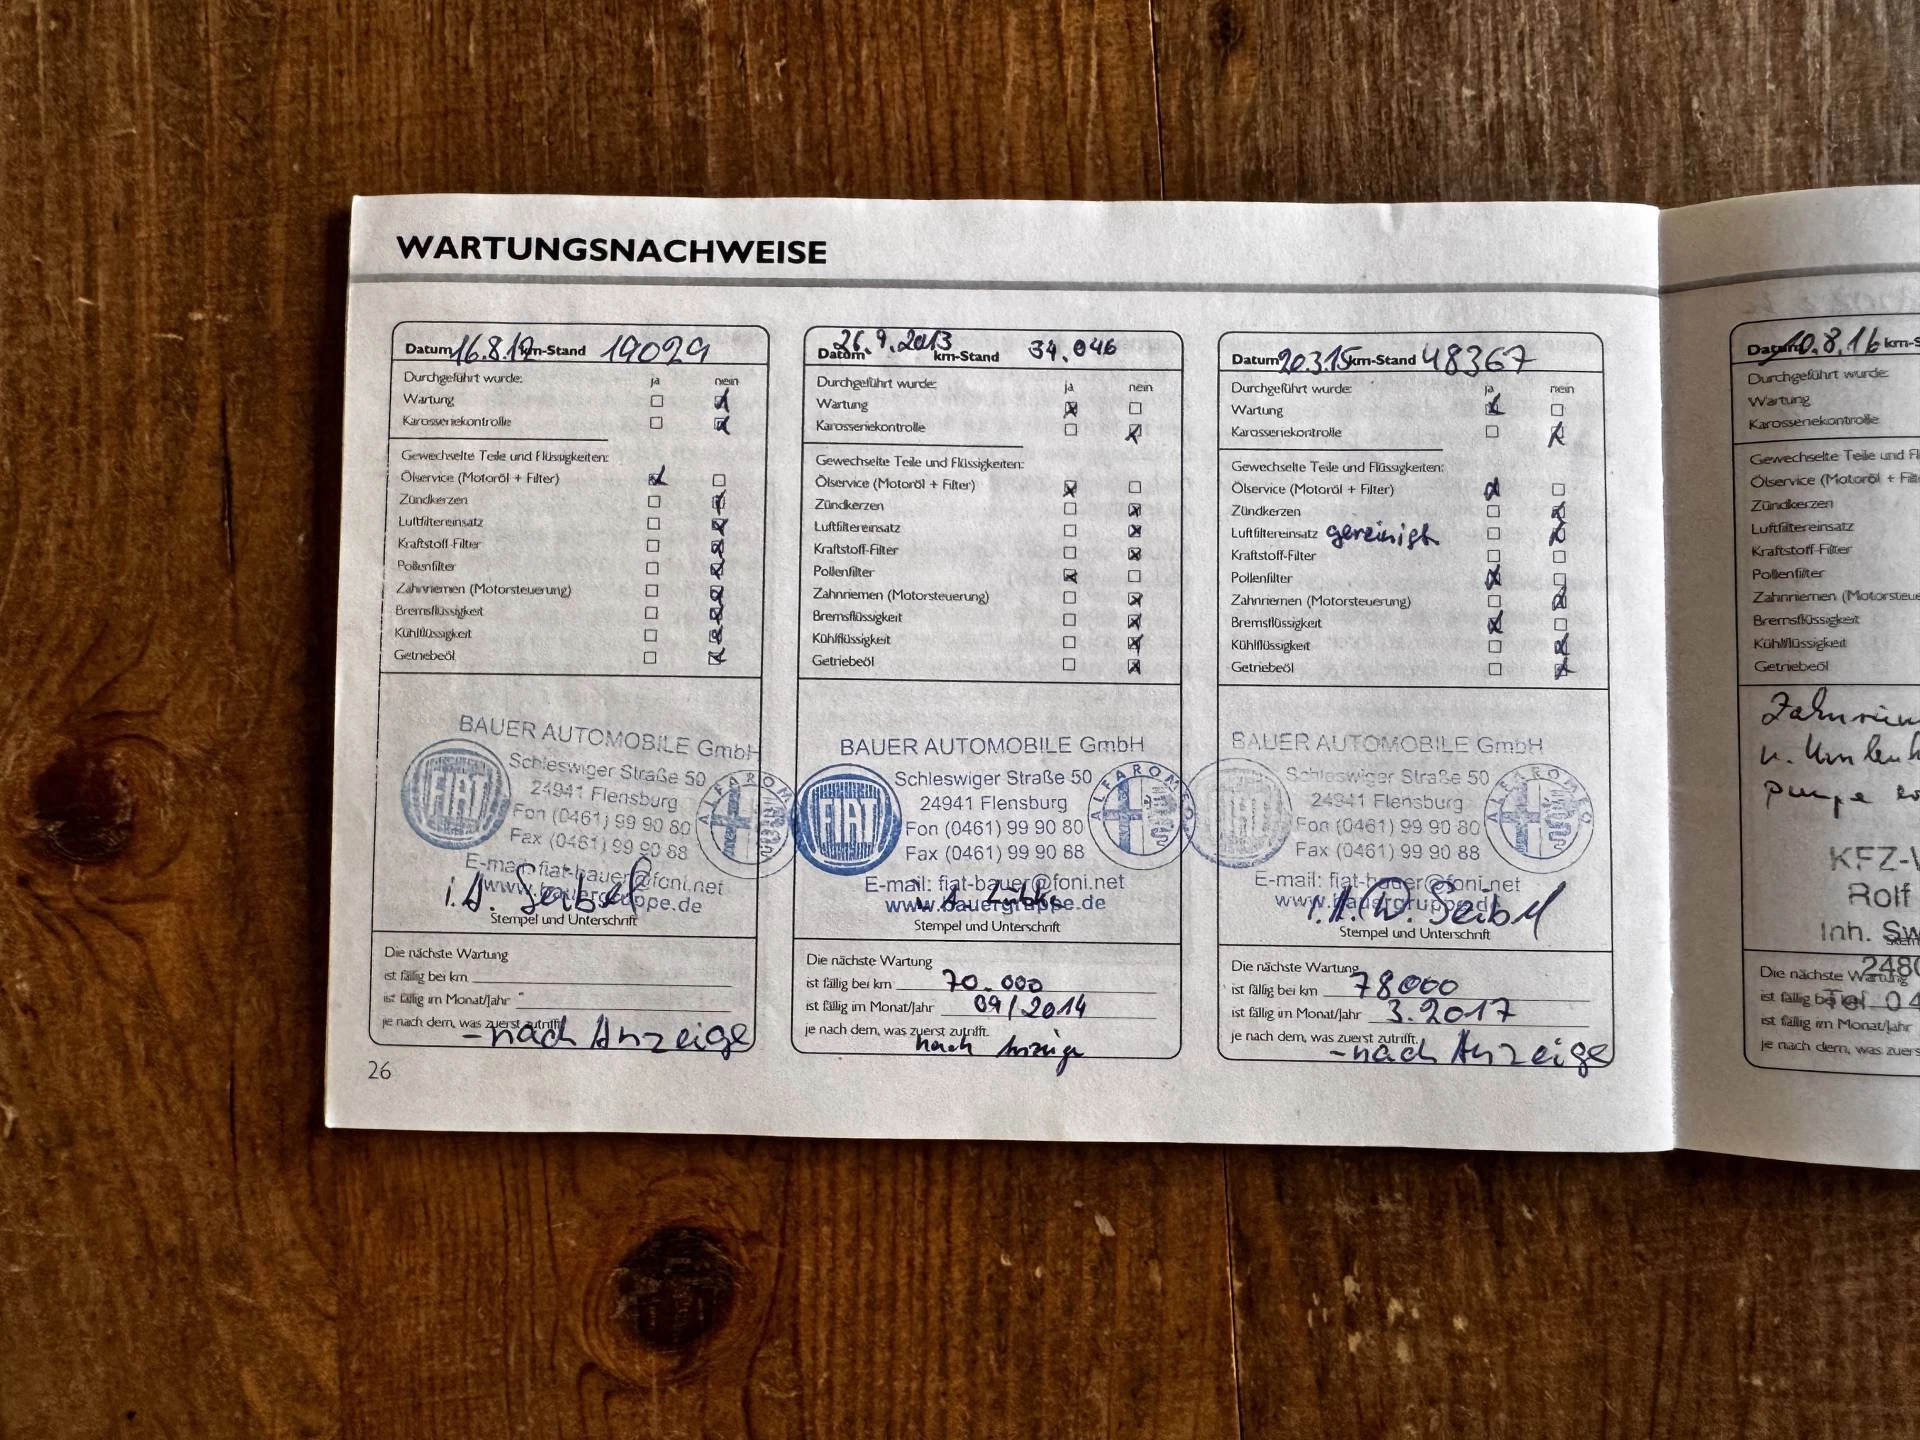 WARTUNGSNACHWEISE
Datum 16.8.12 km-Stand 19029
Durchgeführt wurde: ja nein
Wartung
Karosseriekontrolle
Gewechselte Teile und Flüssigkeiten:
Ölservice (Motoröl + Filter)
Zündkerzen
Luftfiltereinsatz
Kraftstoff-Filter
Pollenfilter
Zahnriemen (Motorsteuerung)
Bremsflüssigkeit
Kühlflüssigkeit
Getriebeöl
BAUER AUTOMOBILE GmbH
FIAT
Schleswiger Straße 50
24941 Flensburg
Fon (0461) 99 90 80
Fax (0461) 99 90 88
ALFA ROMEO
E-mail: fiat-bauer@foni.net
www.bauergruppe.de
i.A. Seibel
Stempel und Unterschrift
Die nächste Wartung
ist fällig bei km
ist fällig im Monat/Jahr
je nach dem, was zuerst zutrifft.
- nach Anzeige
26
Datum 26.9.2013 km-Stand 34.046
Durchgeführt wurde: ja nein
Wartung
Karosseriekontrolle
Gewechselte Teile und Flüssigkeiten:
Ölservice (Motoröl + Filter)
Zündkerzen
Luftfiltereinsatz
Kraftstoff-Filter
Pollenfilter
Zahnriemen (Motorsteuerung)
Bremsflüssigkeit
Kühlflüssigkeit
Getriebeöl
BAUER AUTOMOBILE GmbH
FIAT
Schleswiger Straße 50
24941 Flensburg
Fon (0461) 99 90 80
Fax (0461) 99 90 88
ALFA ROMEO
E-mail: fiat-bauer@foni.net
www.bauergruppe.de
Stempel und Unterschrift
Die nächste Wartung
ist fällig bei km 70.000
ist fällig im Monat/Jahr 09/2014
je nach dem, was zuerst zutrifft.
nach Anzeige
Datum 20.3.15 km-Stand 48367
Durchgeführt wurde: ja nein
Wartung
Karosseriekontrolle
Gewechselte Teile und Flüssigkeiten:
Ölservice (Motoröl + Filter)
Zündkerzen
Luftfiltereinsatz gereinigt
Kraftstoff-Filter
Pollenfilter
Zahnriemen (Motorsteuerung)
Bremsflüssigkeit
Kühlflüssigkeit
Getriebeöl
BAUER AUTOMOBILE GmbH
FIAT
Schleswiger Straße 50
24941 Flensburg
Fon (0461) 99 90 80
Fax (0461) 99 90 88
ALFA ROMEO
E-mail: fiat-bauer@foni.net
www.bauergruppe.de
i.A. (D. Seibel
Stempel und Unterschrift
Die nächste Wartung
ist fällig bei km 78000
ist fällig im Monat/Jahr 3.2017
je nach dem, was zuerst zutrifft.
- nach Anzeige
Datum 10.8.16 km-S
Durchgeführt wurde:
Wartung
Karosseriekontrolle
Gewechselte Teile und Fl
Ölservice (Motoröl + Filt
Zündkerzen
Luftfiltereinsatz
Kraftstoff-Filter
Pollenfilter
Zahnriemen (Motorsteue
Bremsflüssigkeit
Kühlflüssigkeit
Getriebeöl
u.
KFZ-
Rolf
Inh. Sw
Die nächste Wartung
ist fällig bei km
ist fällig im Monat/Jahr
je nach dem, was zuers